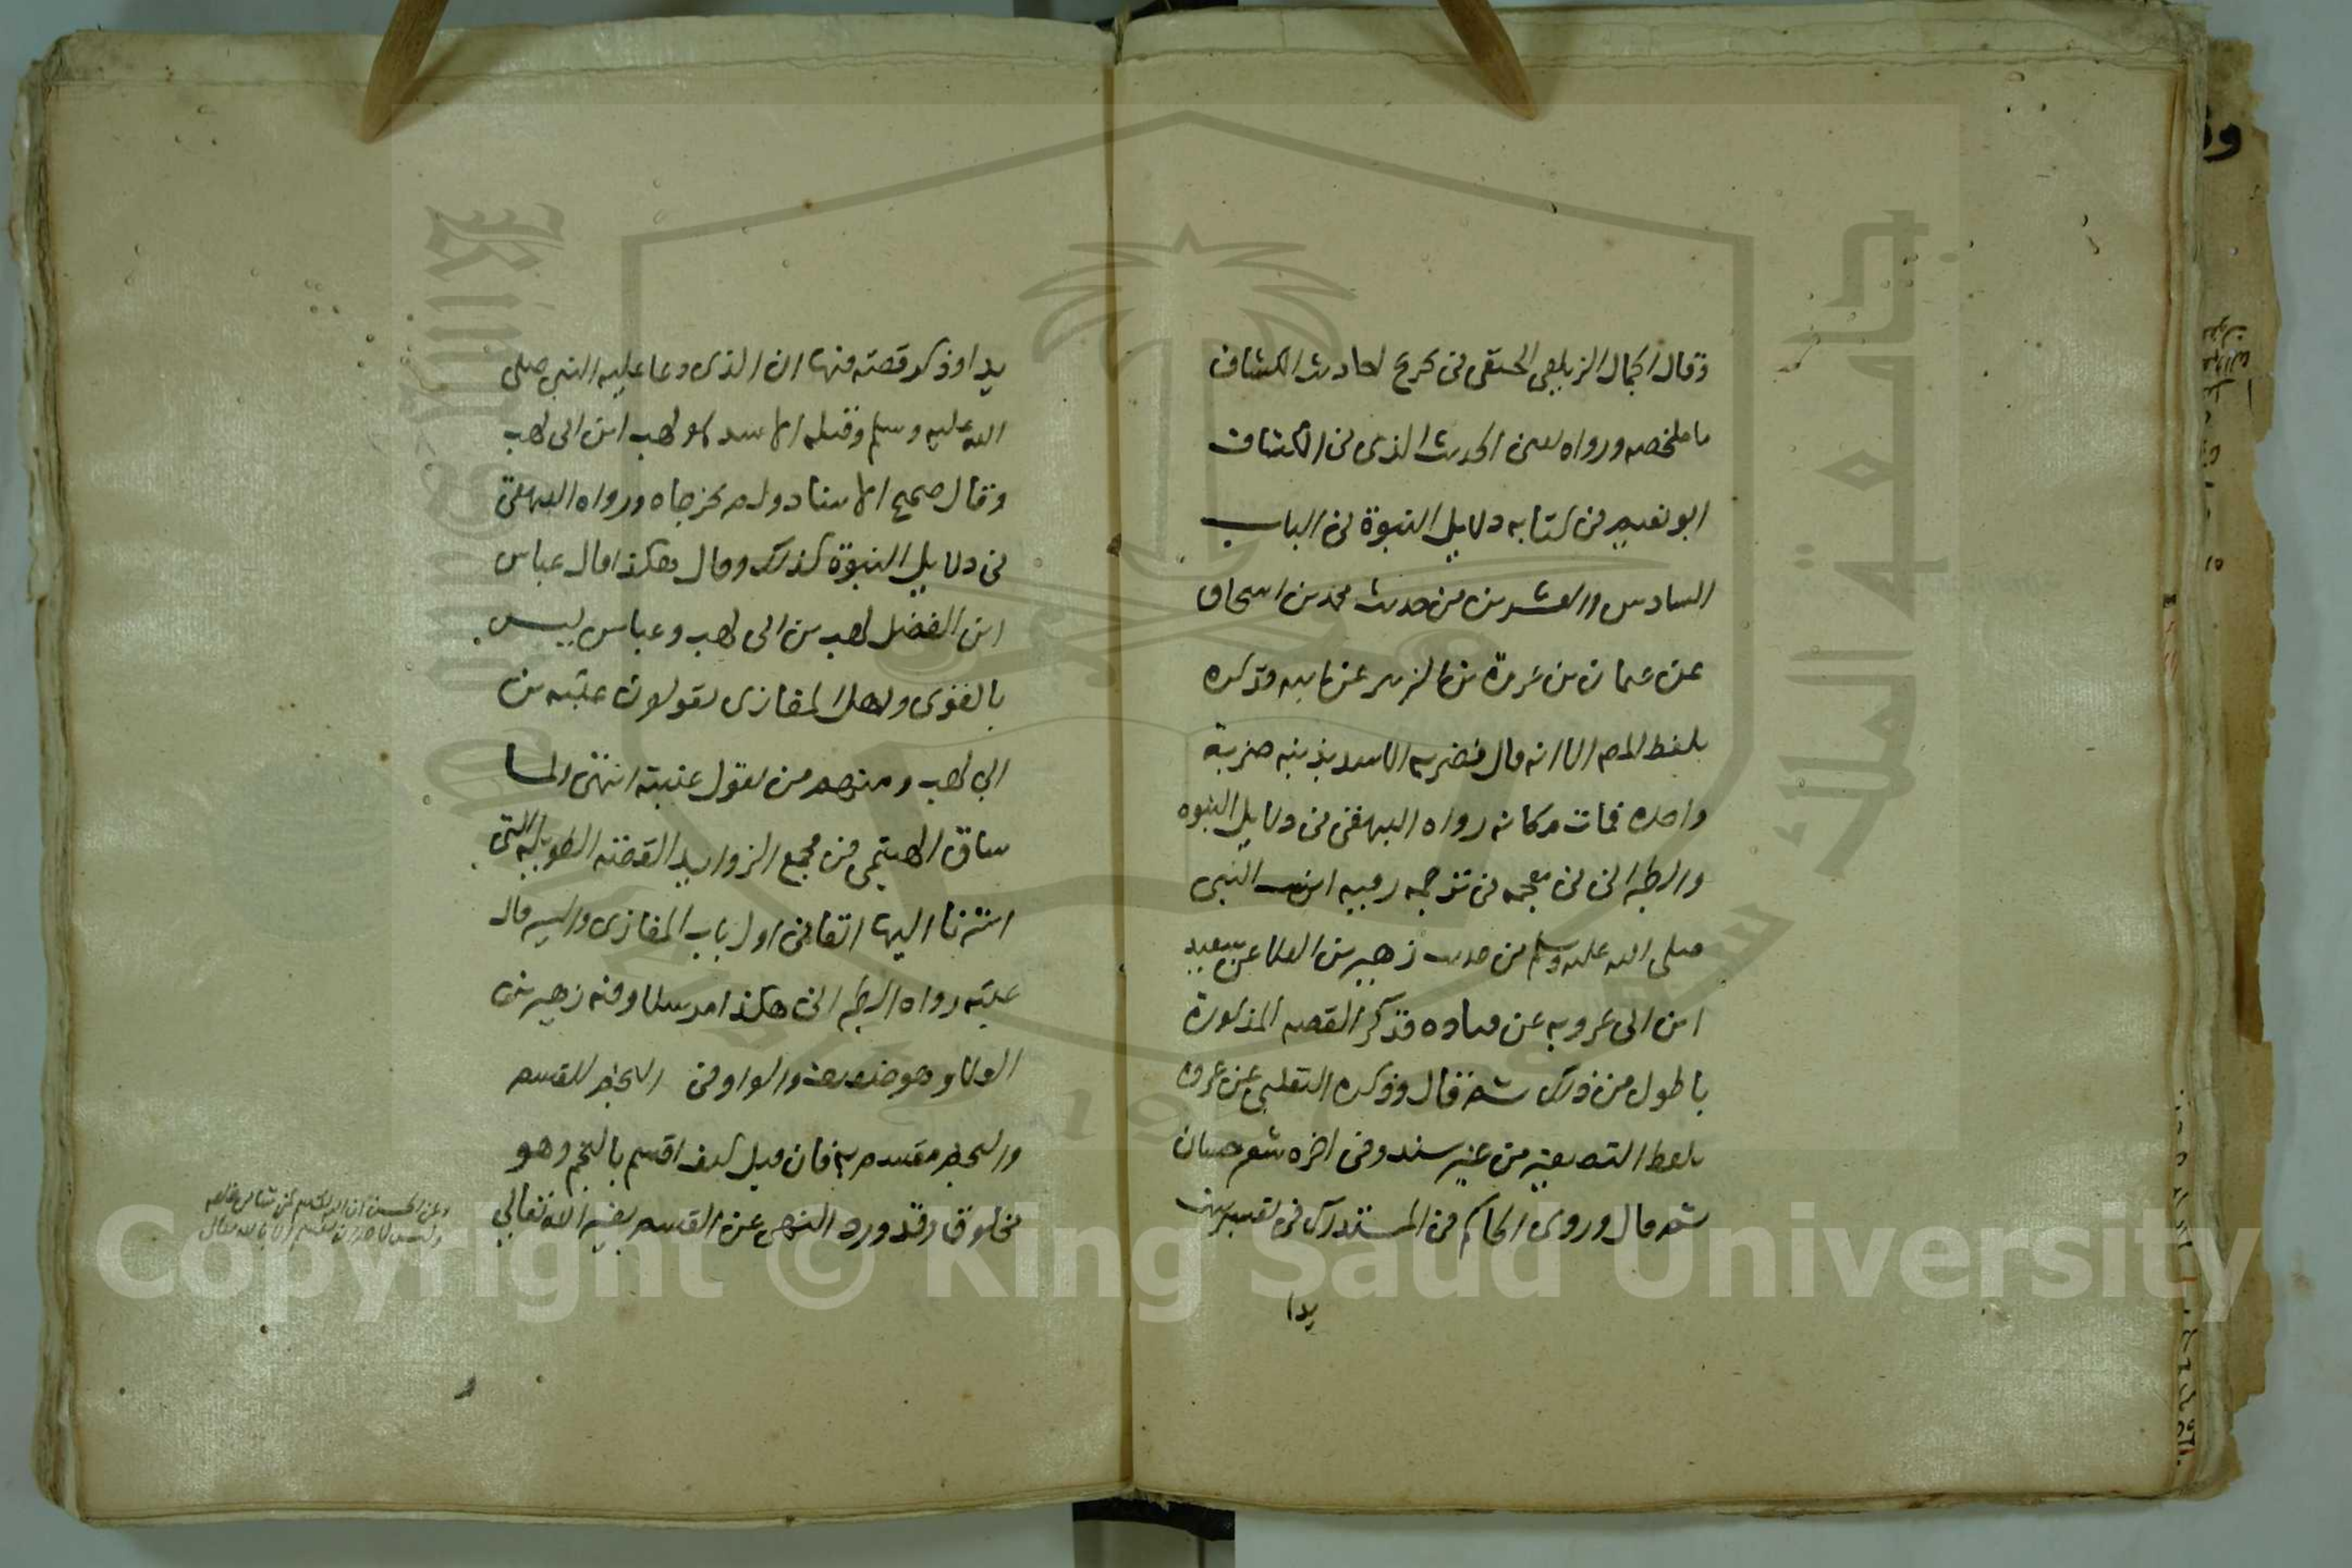 وقال الجمال الزيلعي الحنفي في تخريج احاديث الكشاف
ما ملخصه ورواه يعني الحديث الذي في الكشاف
ابو نعيم في كتابه دلايل النبوة في الباب
السادس والعشرين من حديث محمد بن اسحاق
عن عثمان بن عروة بن الزبير عن ابيه فذكره
بلفظ المص الا انه قال فضربه الاسد بذنبه ضربة
واحدة فمات مكانه رواه البيهقي في دلايل النبوة
والطبراني في معجمه في ترجمة رقيه ابنت النبي
صلى الله عليه وسلم من حديث زهير بن العلا عن سعيد
ابن ابي عروبه عن قتاده فذكر القصه المذكورة
باطول من ذلك ثم قال وذكره الثعلبي عن عروه
بلفظ التصغير من غير سند وفي اخره شعر حسان
ثم قال وروى الحاكم في المستدرك في تفسير تبت
يدا
يدا وذكر قصته فيها ان الذي دعا عليه النبي صلى
الله عليه وسلم وقتله الاسد هو لهب ابن ابي لهب
وقال صحيح الاسناد ولم يخرجاه ورواه البيهقي
في دلايل النبوة كذلك وقال هكذا قال عباس
ابن الفضل لهب بن ابي لهب وعباس ليس
بالقوي واهل المغازي يقولون عتبه بن
ابي لهب ومنهم من يقول عتيبة انتهى
ساق الهيثمي في مجمع الزوايد القصه الطويله التي
اشرنا اليها اتفا في اول باب المغازي والسير قال
عقبه رواه الطبراني هكذا مرسلا وفيه زهير بن
العلا وهو ضعيف والواو في النجم للقسم
والنجم مقسم به فان قيل كيف اقسم بالنجم وهو
مخلوق وقد ورد النهي عن القسم بغير الله تعالى
وعن الحسن ان الله يقسم بمن شا من خلقه
وليس لاحد ان يقسم الا بالله تعالى
جامعة الملك سعود
King Saud University
Copyright © King Saud University